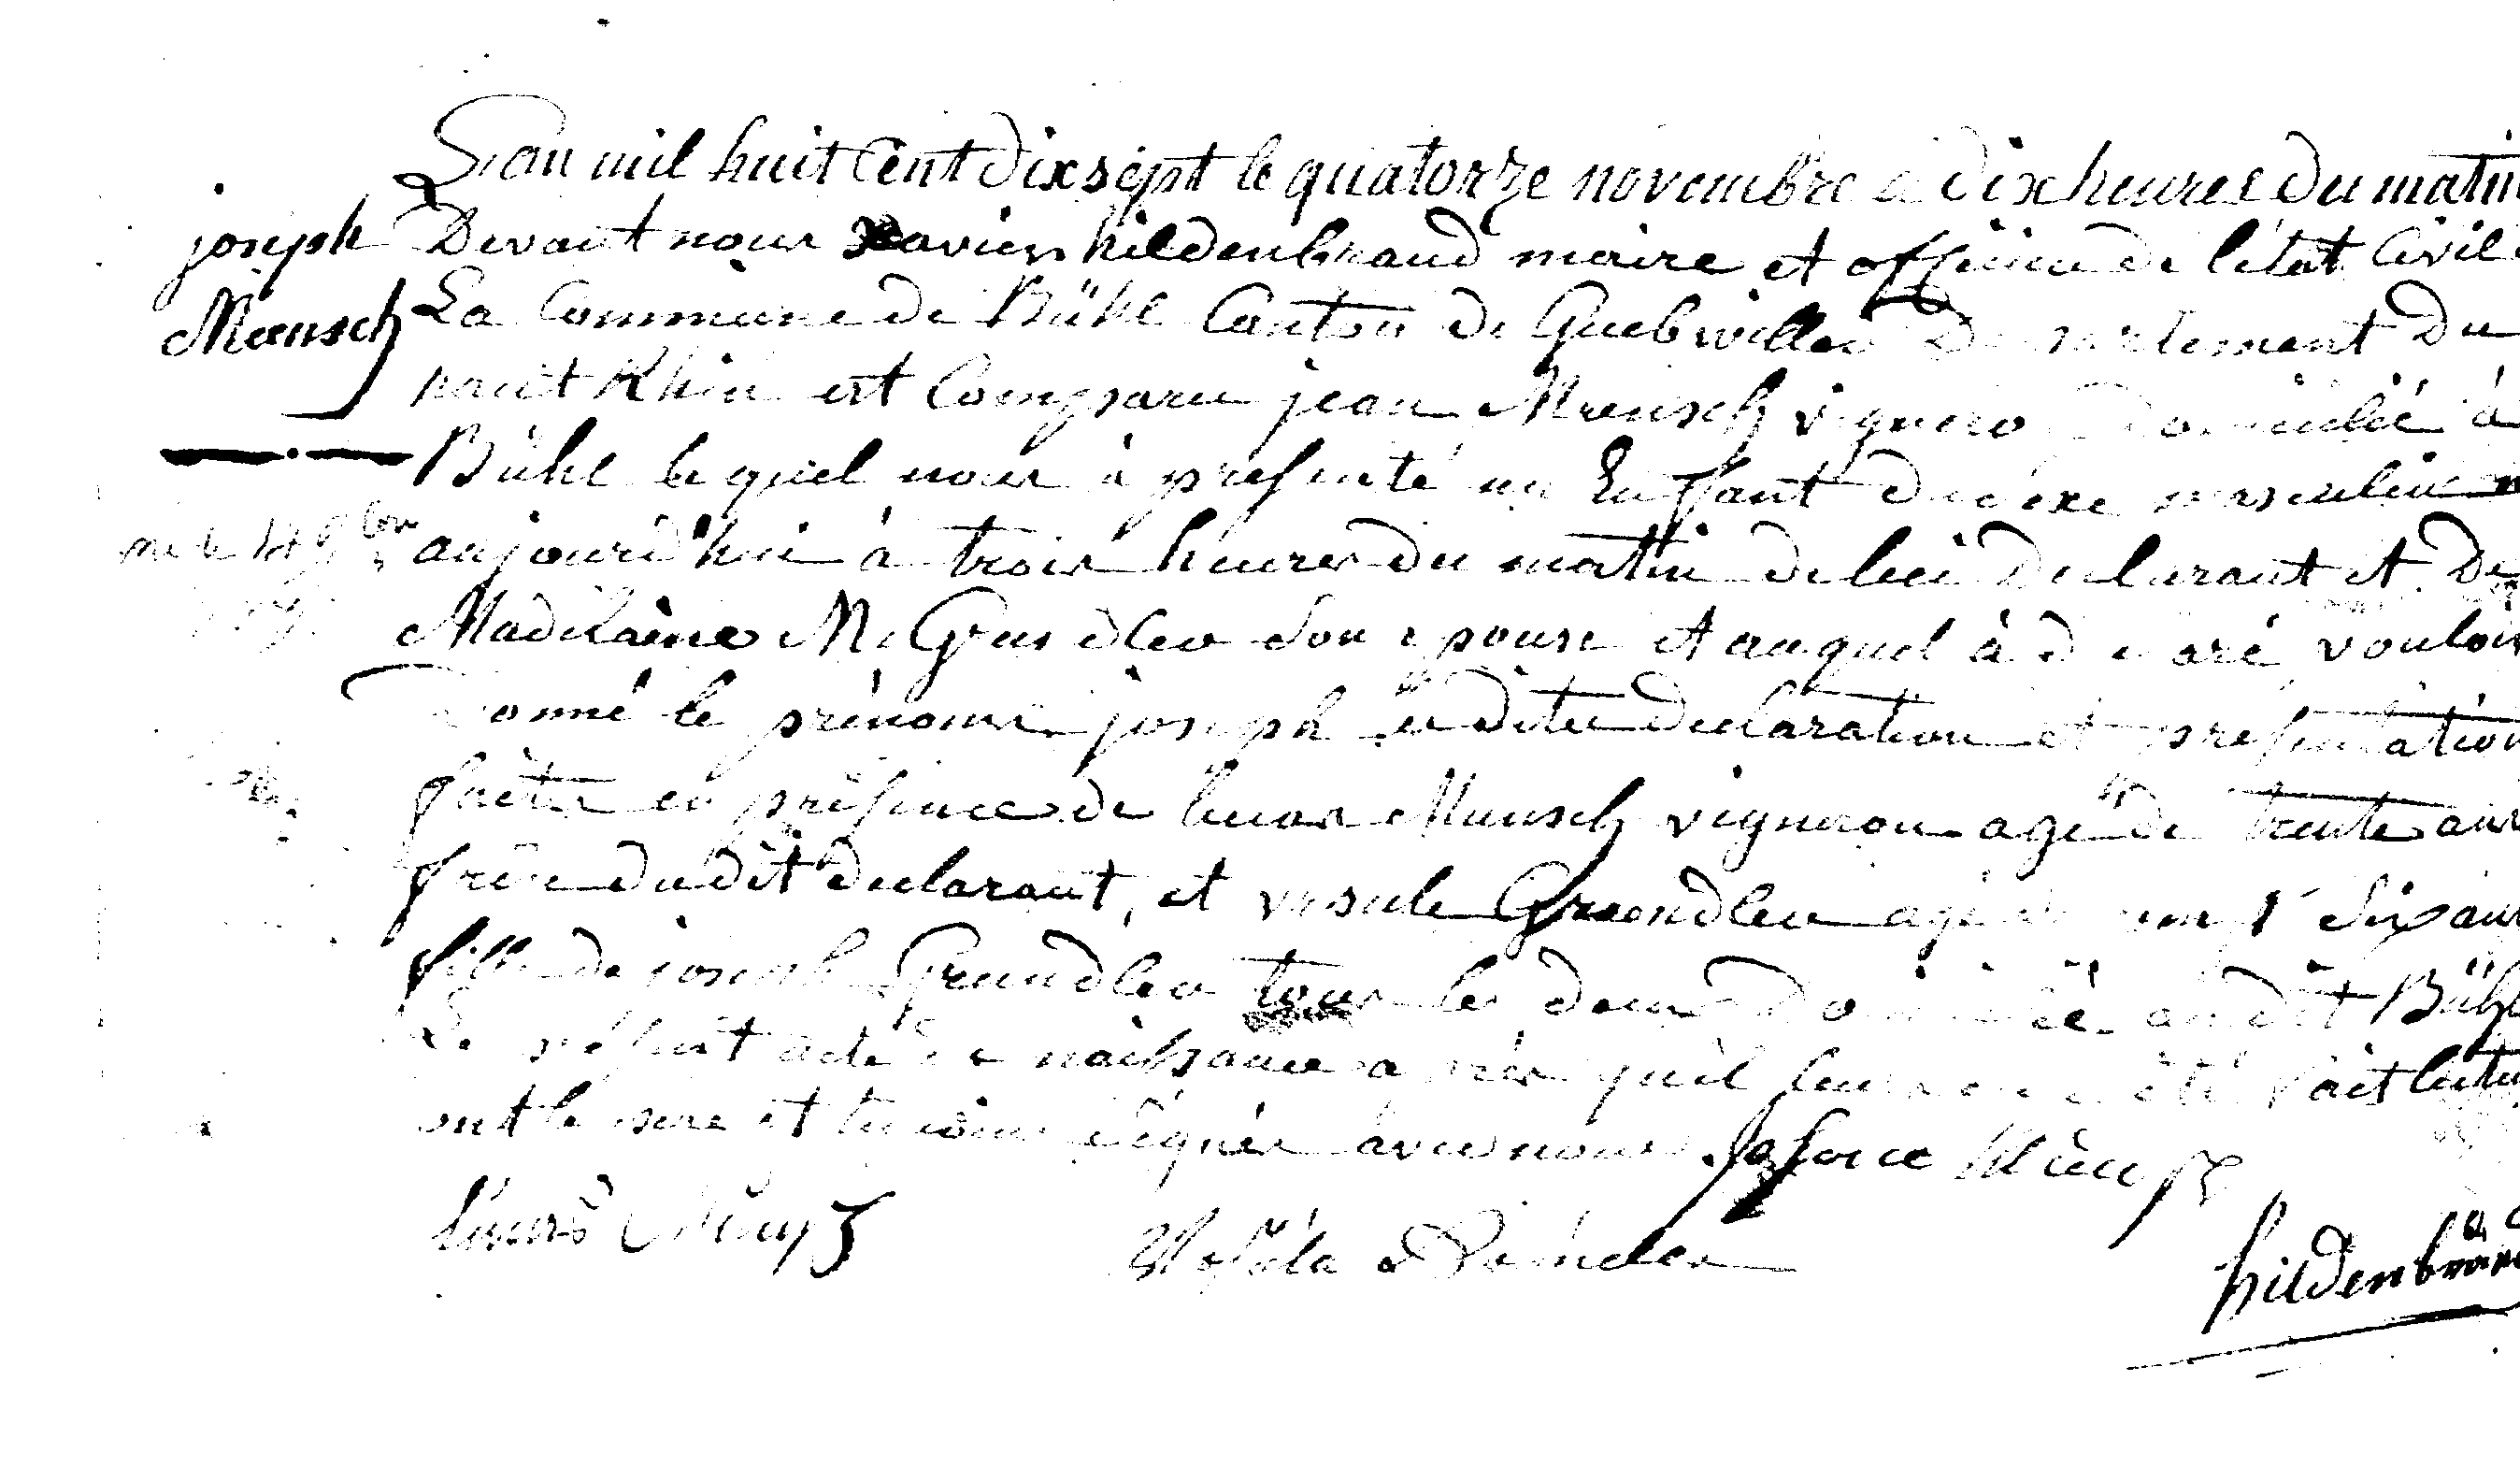 L'an mil huit Cent Dix sept le quatorze novembre à dix heures du matin
joseph
Devant nous xavier hildenbrand maire et officier de l'état Civil
Mensch
La Commune de Bühl Canton de Guebwiller Departement du
haut Rhin est Comparu jean Mensch vigneron Domicilié à
Bühl le quel nous à presenté un Enfant du sexe masculin
né le 14 9bre
aujourd'hui à trois heures du matin de lui Declarant et De
Madelaine Grundler Son epouse et auquel à declaré vouloir
Donné le prénom joseph dites declaration et presentation
faites en présence de Mensch vigneron agé de trente ans
frère du dit declarant, et ursule Grondler agé vingt Six ans
fille de joseph Grundler tous les deux Domicilié au dit Bühl
Le présent acte de naissance après qu'il leur en a été fait lecture
ont le pere et temoins signés avec nous
hildenbrand